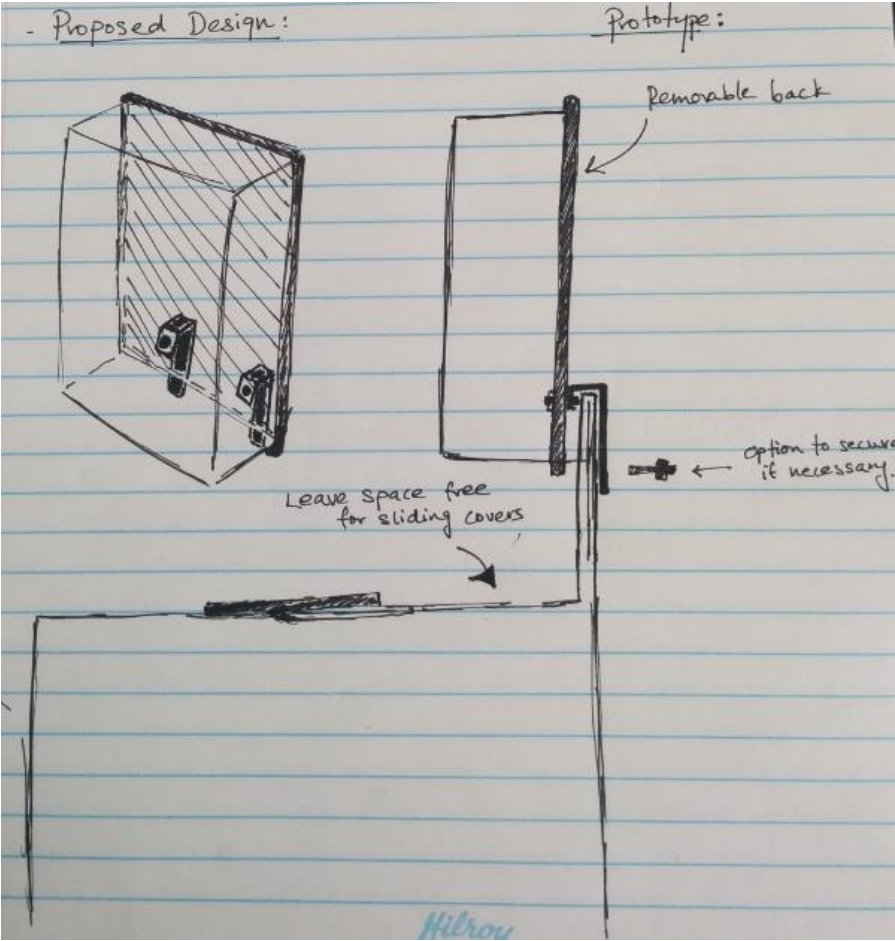 - Proposed Design:
Prototype:
Removable back
option to secure
if necessary.
Leave space free
for sliding covers
Hilroy